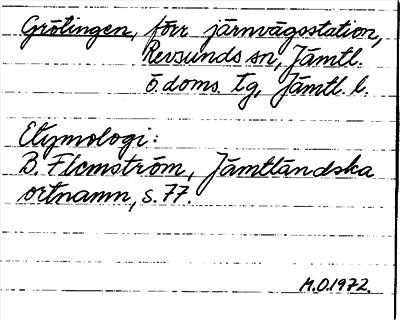 Grötingen, förr järnvägsstation,
Revsunds sn, Jämtl.
ö. doms. tg, Jämtl. l.
Etymologi:
B. Flemström, Jämtländska
ortnamn, s. 77.
M.O.1972.